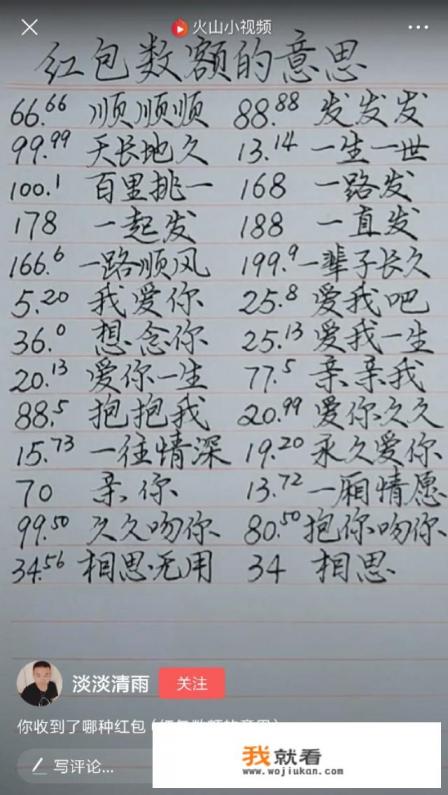 火山小视频
红包数额的意思
66.66 顺顺顺 88.88 发发发
99.99 天长地久 13.14 一生一世
100.1 百里挑一 168 一路发
178 一起发 188 一直发
166.6 一路顺风 199.9 一辈子长久
5.20 我爱你 25.8 爱我吧
36.0 想念你 25.13 爱我一生
20.13 爱你一生 77.5 亲亲我
88.5 抱抱我 20.99 爱你久久
15.73 一往情深 19.20 永久爱你
70 亲你 13.72 一厢情愿
99.50 久久吻你 80.50 抱你吻你
34.56 相思无用 34 相思
淡淡清雨 关注
你收到了哪种红包（红包数额的意思）
写评论...
我就看
www.wojiukan.com